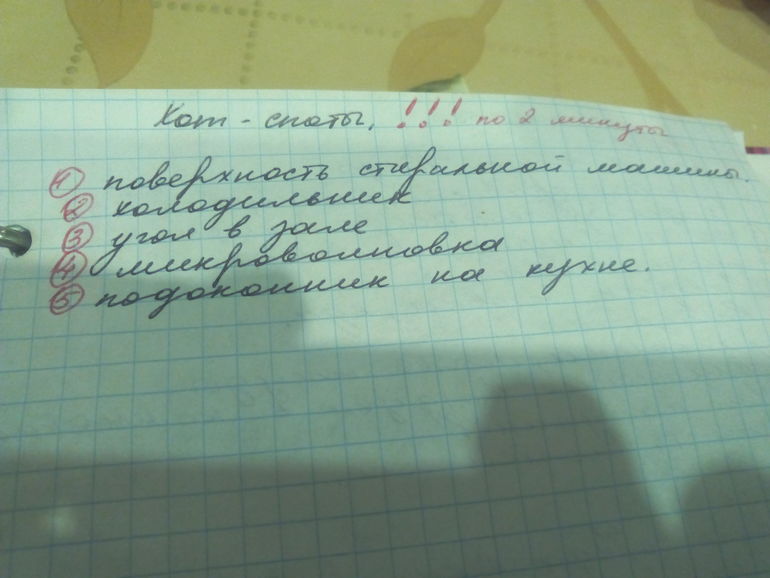 Хот-споты, !!! по 2 минуты
① поверхность стиральной машины.
② холодильник
③ угол в зале
④ микроволновка
⑤ подоконник на кухне.